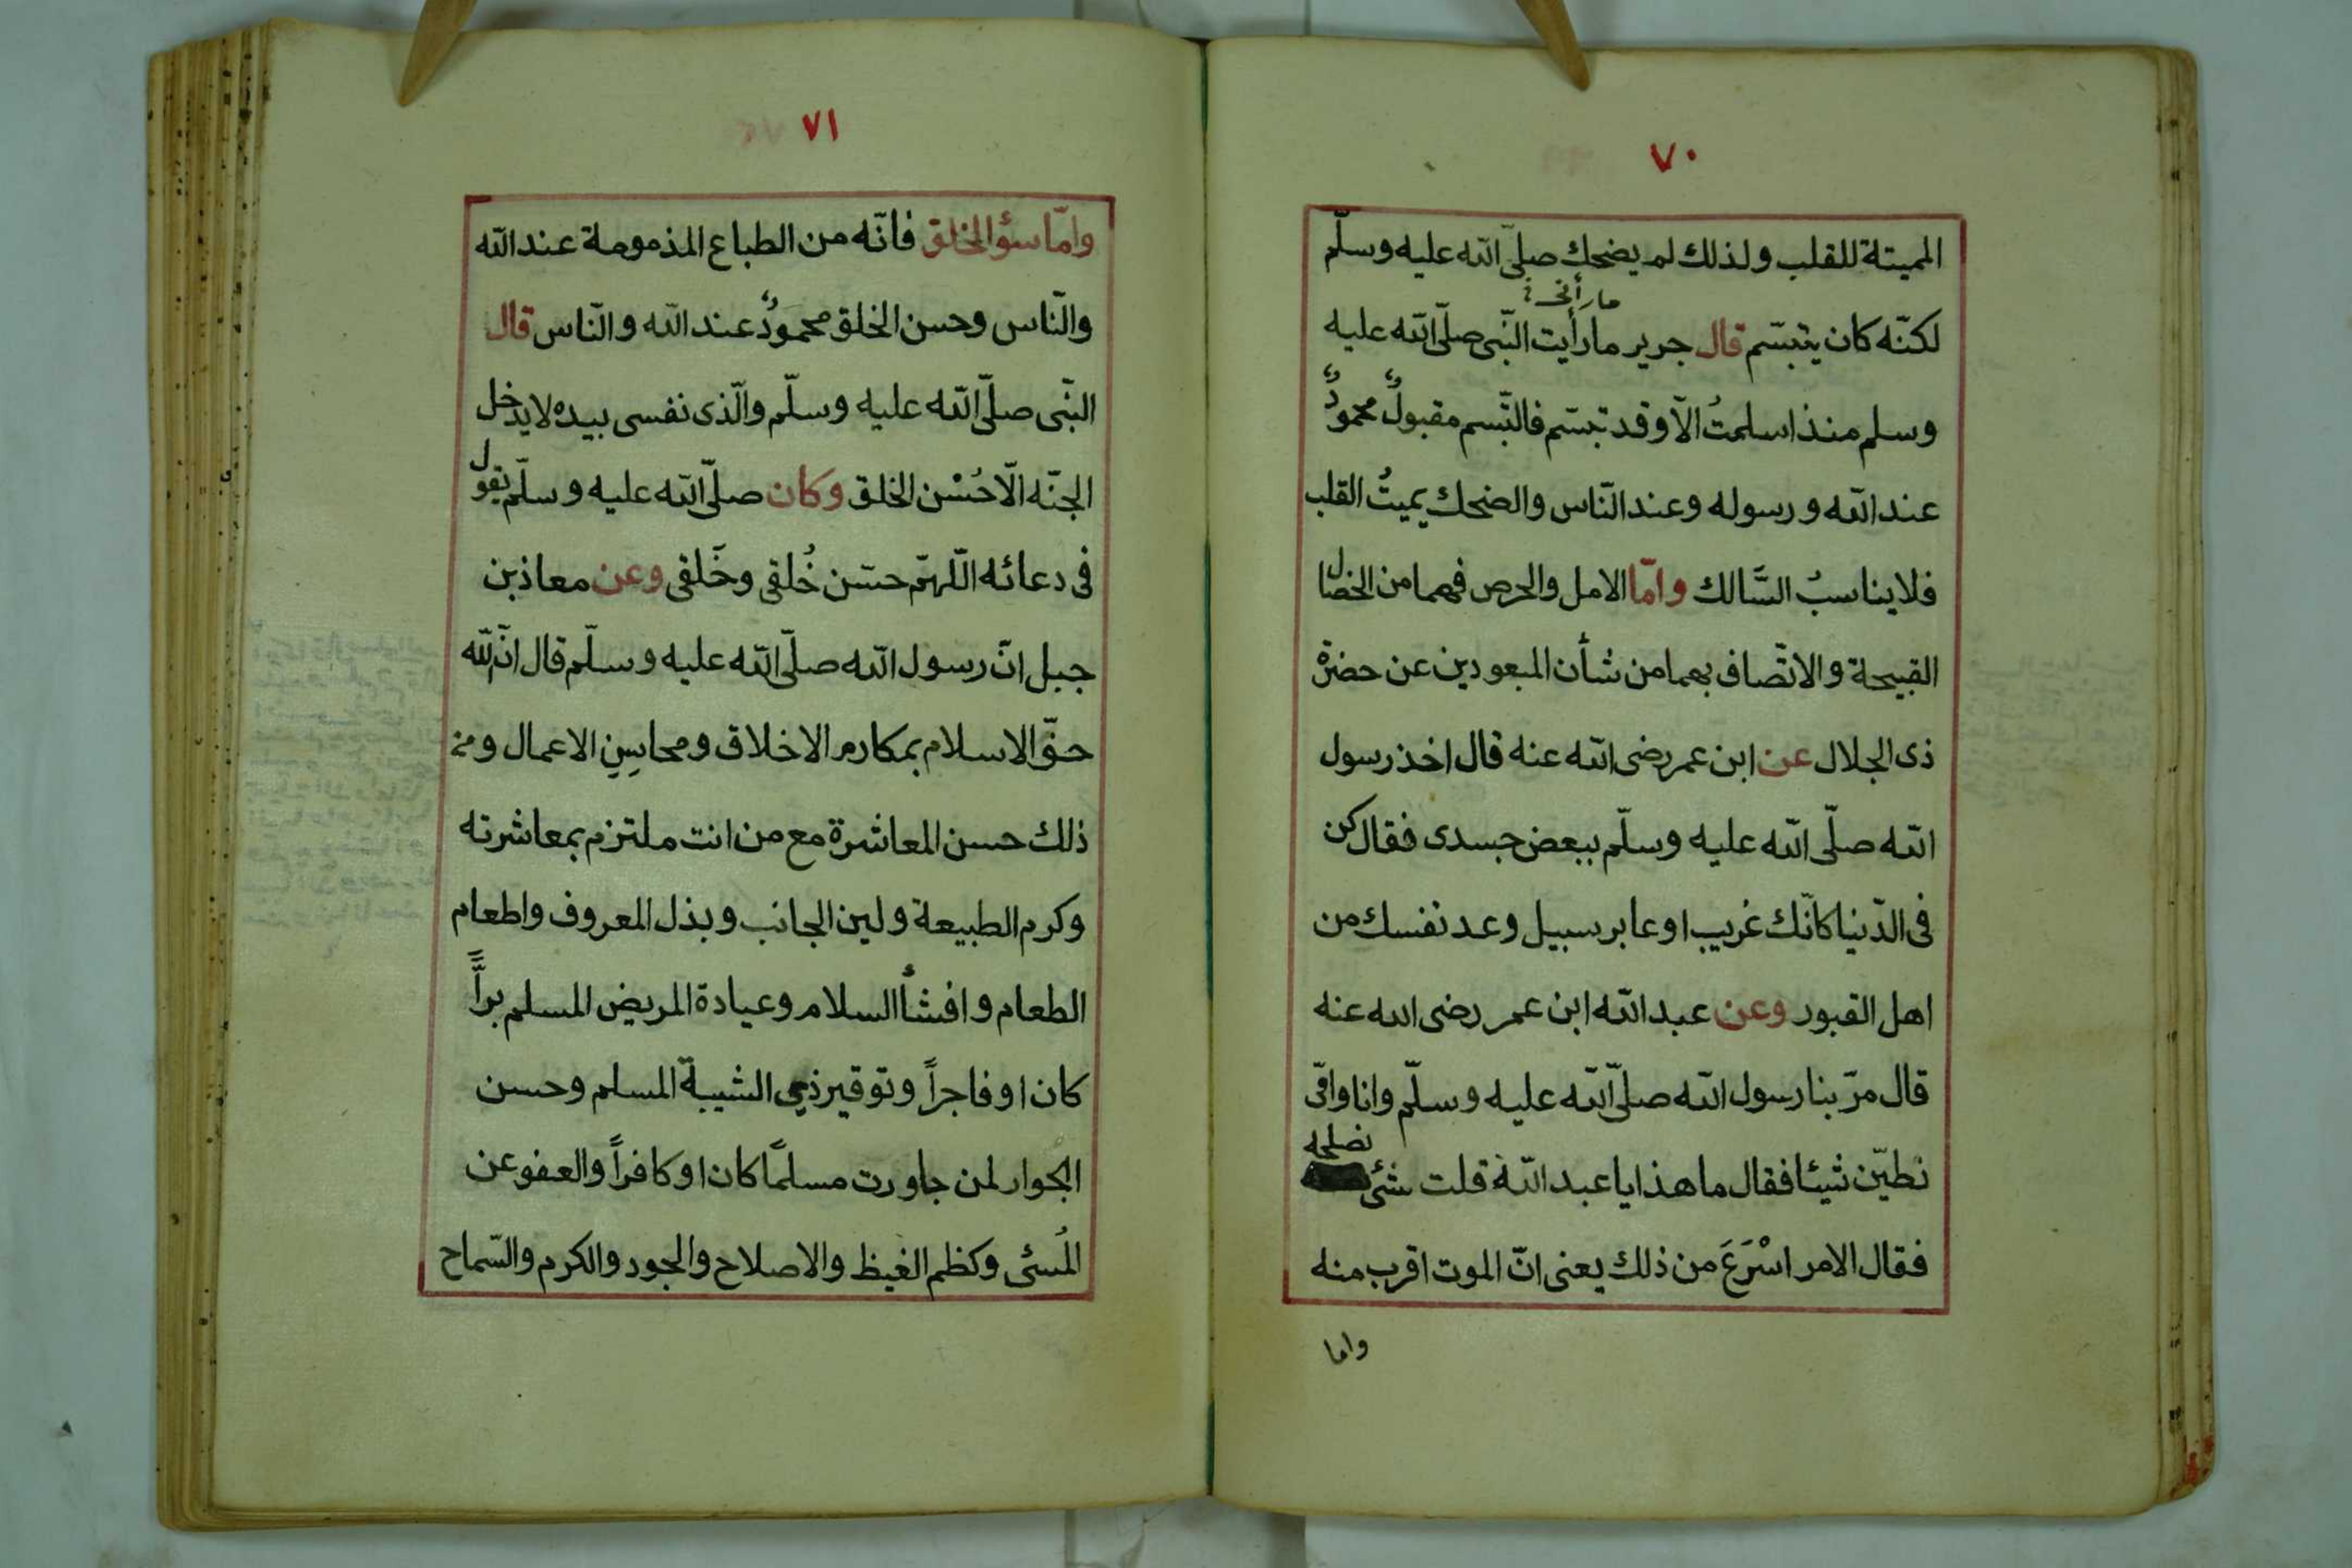 ٧٠
المميتة للقلب ولذلك لم يضحك صلّى الله عليه وسلّم
لكنّه كان يتبسّم قال جرير ما رأيت النّبى صلّى الله عليه
وسلم منذ اسلمتُ الّا وقد تبسّم فالتّبسم مقبولٌ محمودٌ
عند الله ورسوله وعند النّاس والضحك يميتُ القلب
فلا يناسبُ السَّالك وامّا الامل والحرص فهما من الخصال
القبيحة والاتّصاف بهما من شأن المبعودين عن حضرة
ذى الجلال عن ابن عمر رضى الله عنه قال اخذ رسول
الله صلّى الله عليه وسلّم ببعض جسدى فقال كن
فى الدّنيا كانّك غريب او عابر سبيل وعد نفسك من
اهل القبور وعن عبد الله ابن عمر رضى الله عنه
قال مرّ بنا رسول الله صلّى الله عليه وسلّم وانا وامّى
نطيّن شيئا فقال ما هذا يا عبد الله قلت شئ نصلحه
فقال الامر اسْرَعَ من ذلك يعنى انّ الموت اقرب منه
واما
٧١
وامّا سؤ الخلق فانّه من الطباع المذمومة عند الله
والنّاس وحسن الخلق محمودٌ عند الله والنّاس قال
النّبى صلّى الله عليه وسلّم والّذى نفسى بيده لا يدخل
الجنّه الّا حُسْن الخلق وكان صلّى الله عليه وسلّم يقول
فى دعائه اللّهمّ حسّن خُلقى وخَلقى وعن معاذ بن
جبل انّ رسول الله صلّى الله عليه وسلّم قال انّ لله
حفّ الاسلام بمكارم الاخلاق ومحاسِنِ الاعمال ومن
ذلك حسن المعاشرة مع من انت ملتزم بمعاشرته
وكرم الطبيعة ولين الجانب وبذل المعروف واطعام
الطعام وافشأ السلام وعيادة المريض المسلم برًّا
كان او فاجراً وتوقير ذى الشيبة المسلم وحسن
الجوار لمن جاورت مسلمًا كان او كافراً والعفو عن
المُسئى وكظم الغيظ والاصلاح والجود والكرم والسّماح